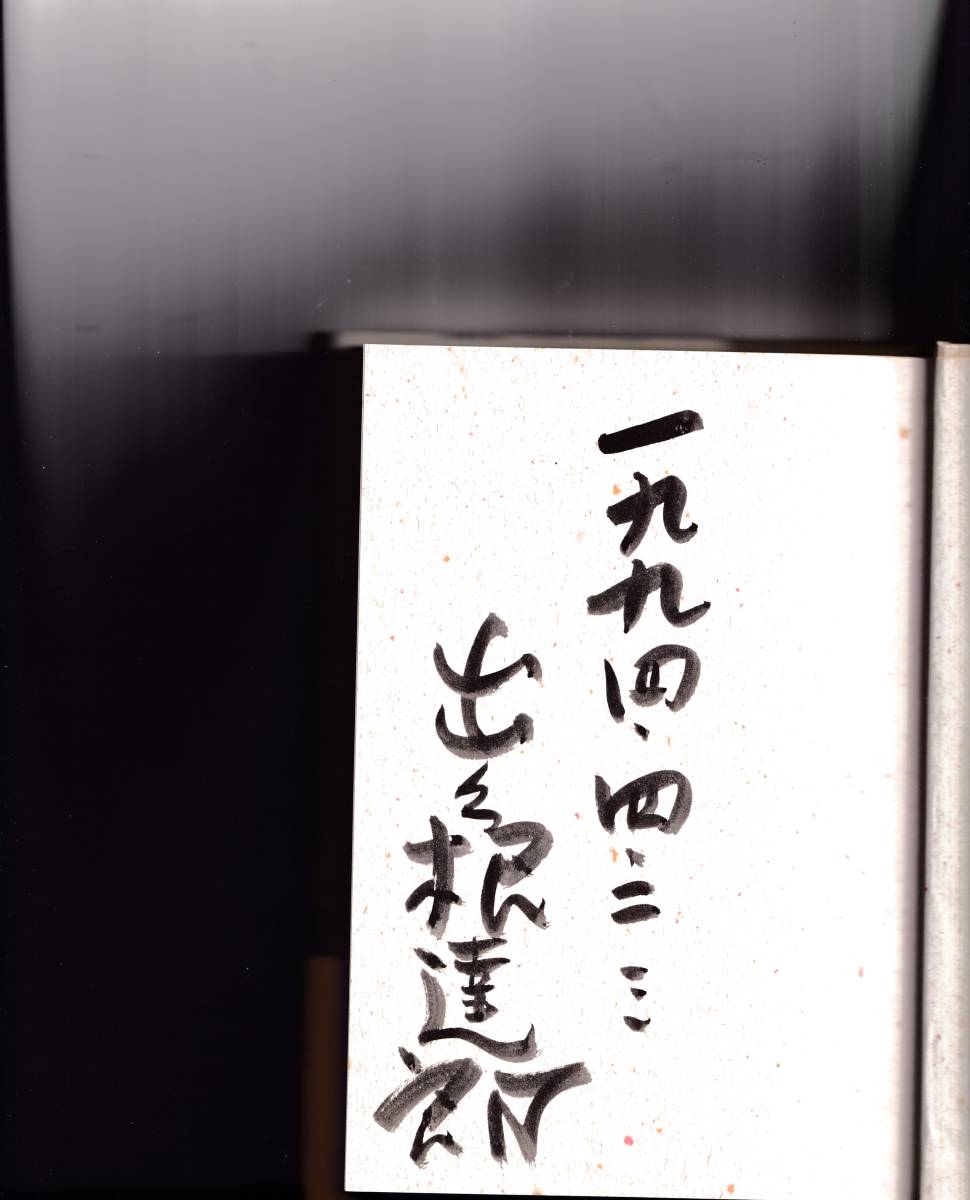 一九九四、四、二三
出久根達郎